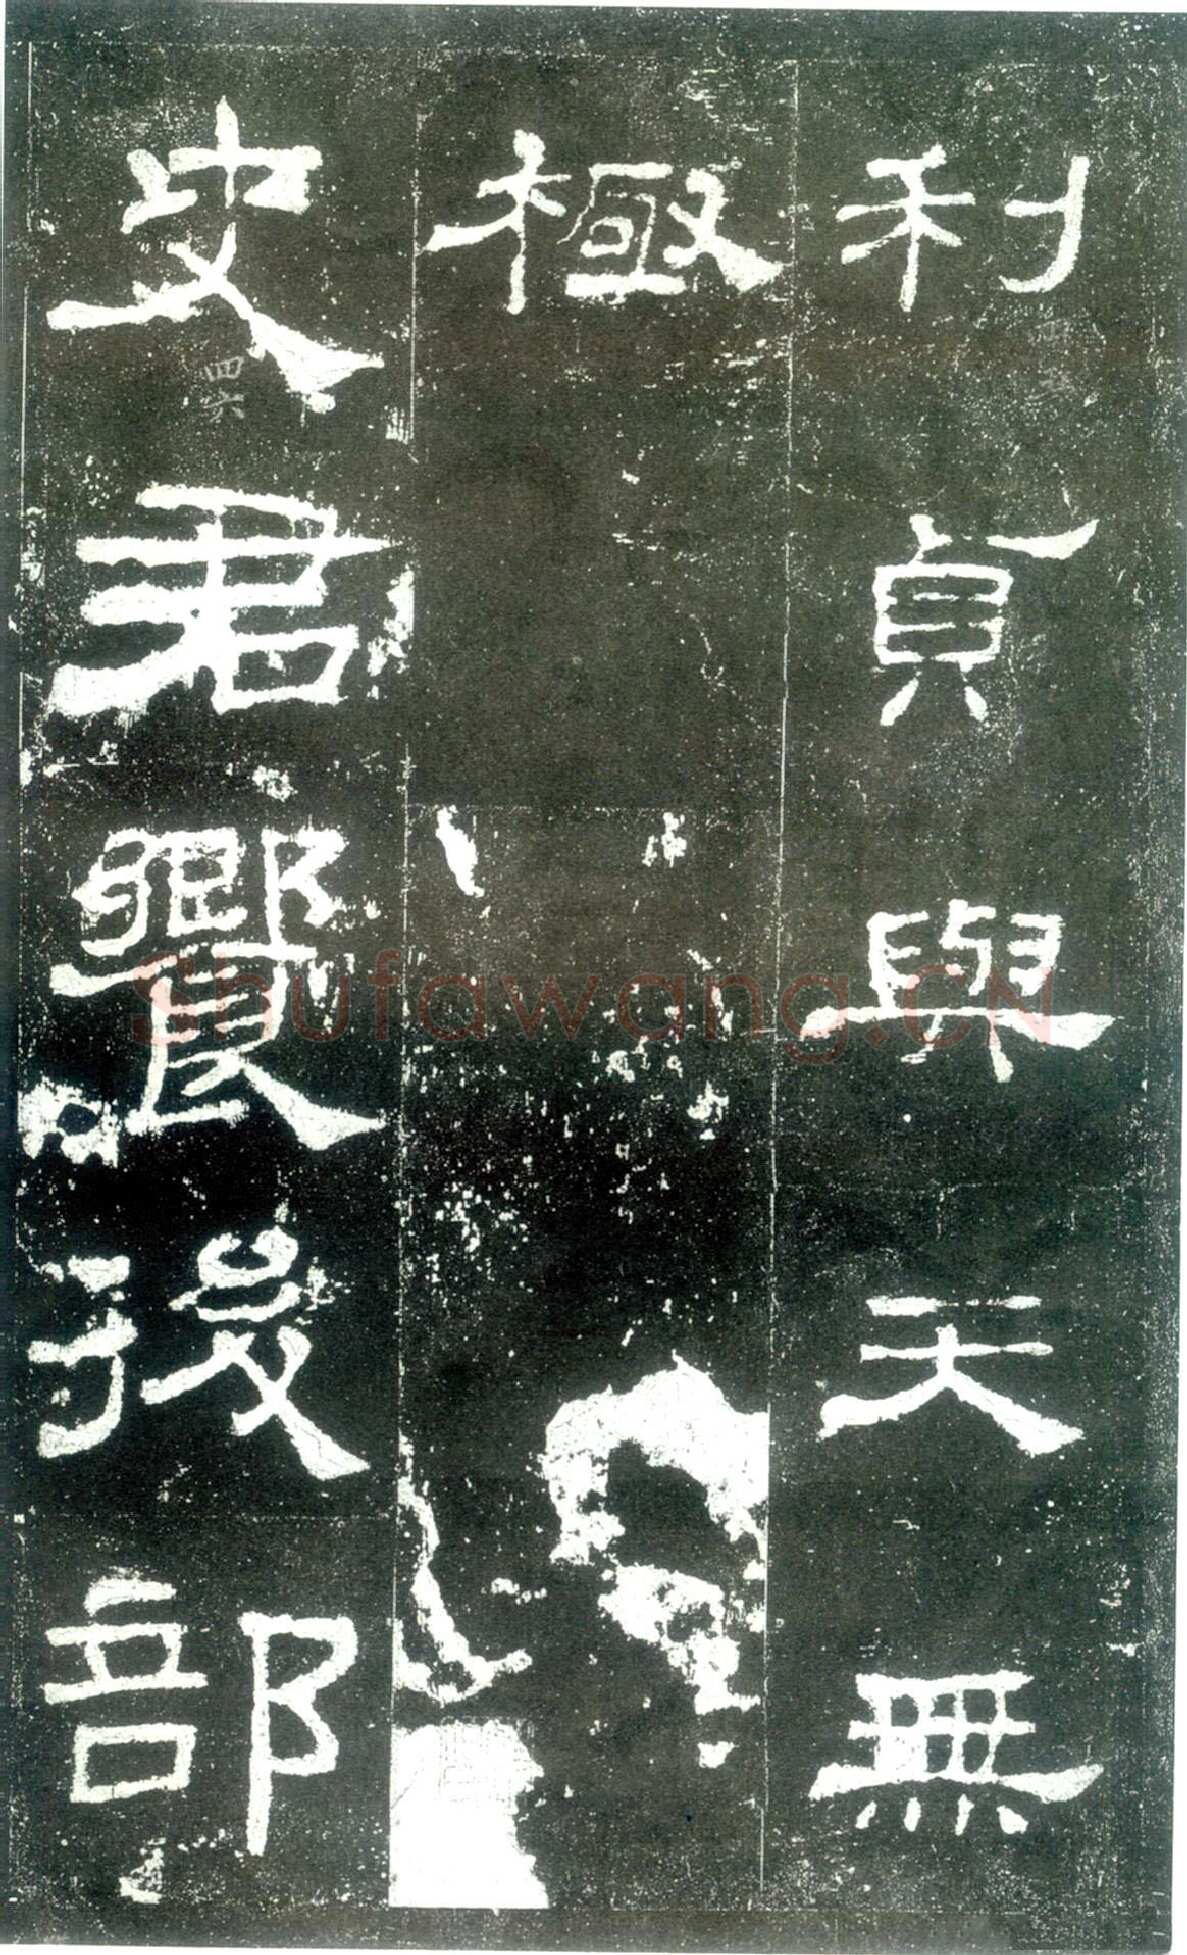 利貞與天無
極
史君饗後部
四六
Shufawang.CN